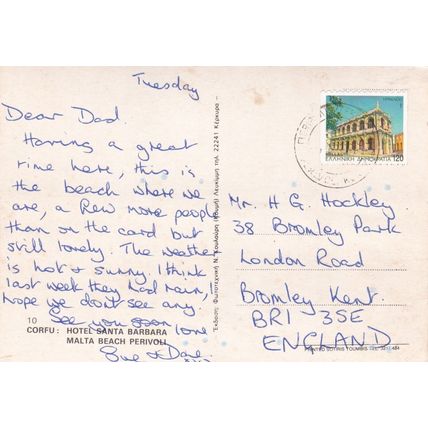 Tuesday
Dear Dad.
Having a great
time here, this is
the beach where we
are, a few more people
than on the card but
still lovely. The weather
is hot & sunny. I think
last week they had rain, I
hope we don't see any.
See you soon love
Sue & Dave.
10
CORFU : HOTEL SANTA BARBARA
MALTA BEACH PERIVOLI
Λευκίμμη τηλ. 22241 Κέρκυρα
ΕΛΛΗΝΙΚΗ ΔΗΜΟΚΡΑΤΙΑ 120
Mr. H G. Hockley
38 Bromley Park
London Road
Bromley Kent.
BR1 3SE
ENGLAND